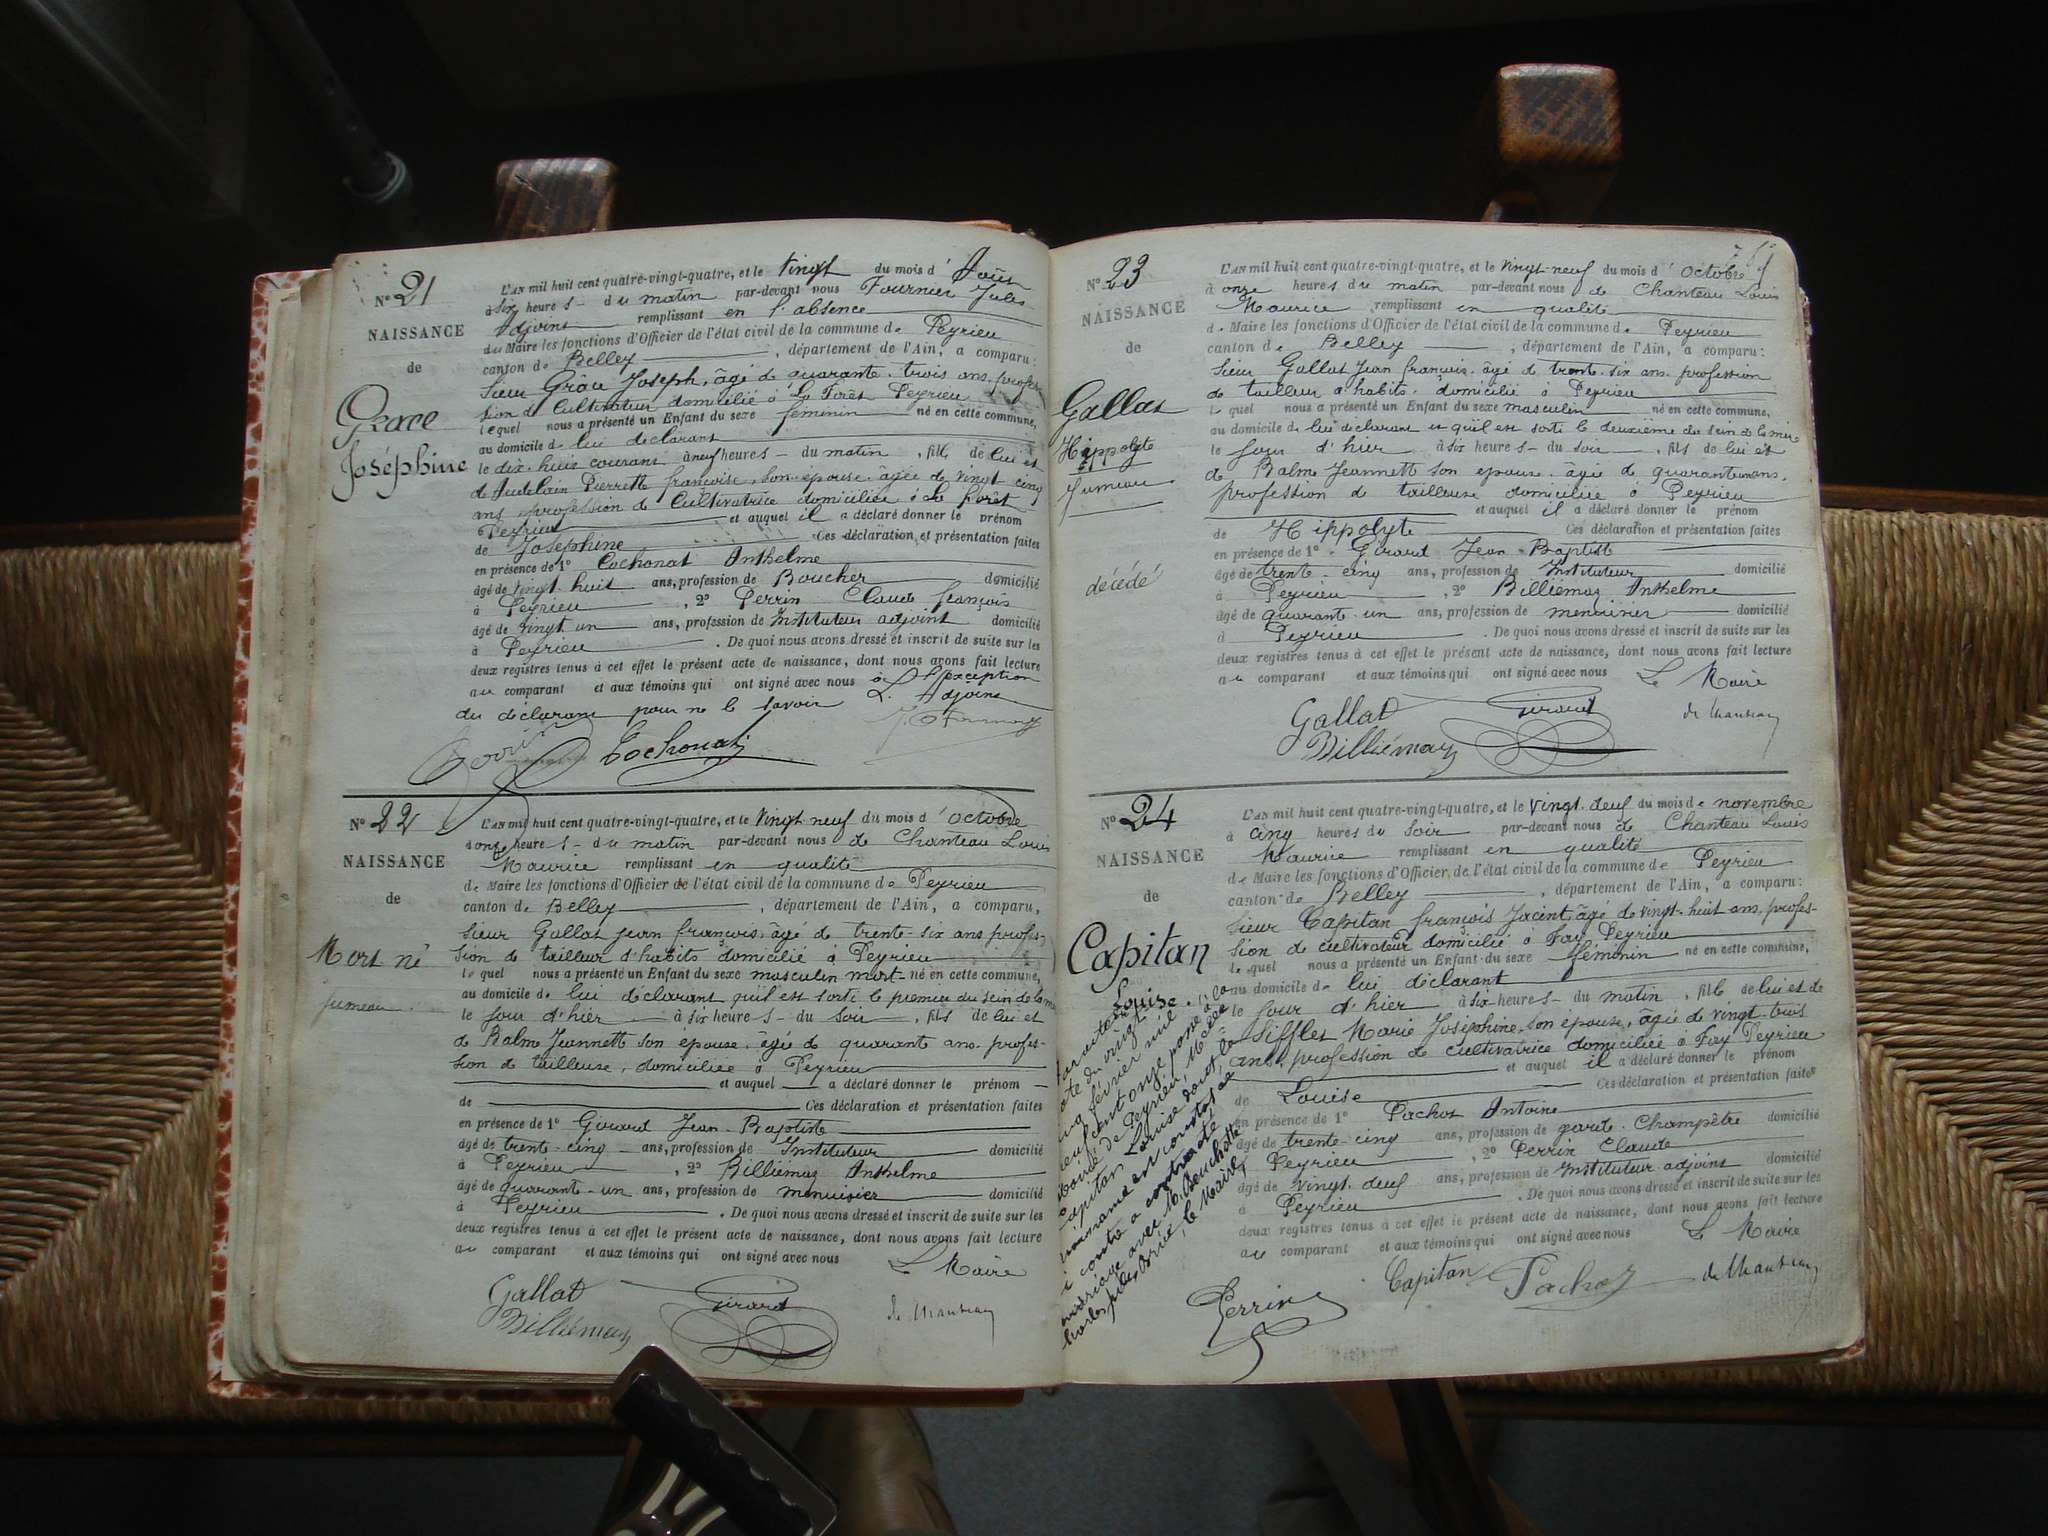 N° 21
NAISSANCE
de
Grace
Joséphine
L'AN mil huit cent quatre-vingt-quatre, et le vingt du mois d' Août
à six heures du matin par-devant nous Fournier Jules
Adjoint remplissant en l'absence
du Maire les fonctions d'Officier de l'état civil de la commune de Peyrieu
canton de Belley, département de l'Ain, a comparu:
Sieur Grâce Joseph, âgé de quarante-trois ans, profes-
sion de Cultivateur domicilié à La Forêt Peyrieu
lequel nous a présenté un Enfant du sexe féminin né en cette commune,
au domicile de lui déclarant
le dix-huit courant à neuf heures du matin, fille de lui et
de Pierrette françoise, son épouse, âgée de vingt cinq
ans, profession de Cultivatrice domiciliée à La forêt
Peyrieu et auquel il a déclaré donner le prénom
de Joséphine Ces déclaration et présentation faites
en présence de 1° Cochonat Anthelme
âgé de vingt-huit ans, profession de Boucher domicilié
à Peyrieu, 2° Perrin Claude françois
âgé de vingt un ans, profession de Instituteur adjoint domicilié
à Peyrieu. De quoi nous avons dressé et inscrit de suite sur les
deux registres tenus à cet effet le présent acte de naissance, dont nous avons fait lecture
au comparant et aux témoins qui ont signé avec nous à l'exception
du déclarant pour ne le savoir L'Adjoint
Perrin Cochonat J. Fournier
N° 22
NAISSANCE
de
Mort né
jumeau
L'AN mil huit cent quatre-vingt-quatre, et le vingt-neuf du mois d' octobre
à onze heures du matin par-devant nous de Chanteau Louis
Maurice remplissant en qualité
de Maire les fonctions d'Officier de l'état civil de la commune de Peyrieu
canton de Belley, département de l'Ain, a comparu,
Sieur Gallat jean françois, âgé de trente-six ans, profes-
sion de tailleur d'habits domicilié à Peyrieu
lequel nous a présenté un Enfant du sexe masculin mort-né en cette commune,
au domicile de lui déclarant qu'il est sorti le premier du sein de la mère
le jour d'hier à six heures du soir, fils de lui et
de Balme Jeannette son épouse, âgée de quarante ans, profes-
sion de tailleuse, domiciliée à Peyrieu
et auquel a déclaré donner le prénom
de Ces déclaration et présentation faites
en présence de 1° Girard Jean-Baptiste
âgé de trente-cinq ans, profession de Instituteur domicilié
à Peyrieu, 2° Billiémaz Anthelme
âgé de quarante-un ans, profession de menuisier domicilié
à Peyrieu. De quoi nous avons dressé et inscrit de suite sur les
deux registres tenus à cet effet le présent acte de naissance, dont nous avons fait lecture
au comparant et aux témoins qui ont signé avec nous
Le Maire
Gallat Girard de Chanteau
Billiémaz
N° 23
NAISSANCE
de
Gallat
Hippolyte
Jumeau
décédé
L'AN mil huit cent quatre-vingt-quatre, et le vingt-neuf du mois d' octobre
à onze heures du matin par-devant nous de Chanteau Louis
Maurice remplissant en qualité
de Maire les fonctions d'Officier de l'état civil de la commune de Peyrieu
canton de Belley, département de l'Ain, a comparu:
Sieur Gallat Jean françois, âgé de trente-six ans, profession
de tailleur d'habits, domicilié à Peyrieu
lequel nous a présenté un Enfant du sexe masculin né en cette commune,
au domicile de lui déclarant et qu'il est sorti le deuxième du sein de la mère
le jour d'hier à six heures du soir, fils de lui et
de Balme Jeannette son épouse, âgée de quarante ans,
profession de tailleuse domiciliée à Peyrieu
et auquel il a déclaré donner le prénom
de Hippolyte Ces déclaration et présentation faites
en présence de 1° Girard Jean-Baptiste
âgé de trente cinq ans, profession de Instituteur domicilié
à Peyrieu, 2° Billiémaz Anthelme
âgé de quarante-un ans, profession de menuisier domicilié
à Peyrieu. De quoi nous avons dressé et inscrit de suite sur les
deux registres tenus à cet effet le présent acte de naissance, dont nous avons fait lecture
au comparant et aux témoins qui ont signé avec nous Le Maire
Gallat Girard de Chanteau
Billiémaz
N° 24
NAISSANCE
de
Capitan
Louise
acte du vingt
cinq février mil
neuf cent onze
mairie de Peyrieu, Melle
Capitan Louise dont la
naissance est constatée
ci contre a contracté
mariage avec M.
Le Maire
L'AN mil huit cent quatre-vingt-quatre, et le vingt-deux du mois de novembre
à cinq heures du soir par-devant nous de Chanteau Louis
Maurice remplissant en qualité
de Maire les fonctions d'Officier de l'état civil de la commune de Peyrieu
canton de Belley, département de l'Ain, a comparu:
Sieur Capitan françois Jacint, âgé de vingt-huit ans, profes-
sion de cultivateur domicilié à Fay Peyrieu
lequel nous a présenté un Enfant du sexe féminin né en cette commune,
au domicile de lui déclarant
le jour d'hier à six heures du matin, fille de lui et de
Sifflet Marie Joséphine, son épouse, âgée de vingt-trois
ans, profession de cultivatrice domiciliée à Fay Peyrieu
et auquel il a déclaré donner le prénom
de Louise Ces déclaration et présentation faites
en présence de 1° Pachot Antoine
âgé de trente-cinq ans, profession de garde-Champêtre domicilié
à Peyrieu, 2° Perrin Claude
âgé de vingt-deux ans, profession de Instituteur-adjoint domicilié
à Peyrieu. De quoi nous avons dressé et inscrit de suite sur les
deux registres tenus à cet effet le présent acte de naissance, dont nous avons fait lecture
au comparant et aux témoins qui ont signé avec nous Le Maire
Perrin Capitan Pachot de Chanteau